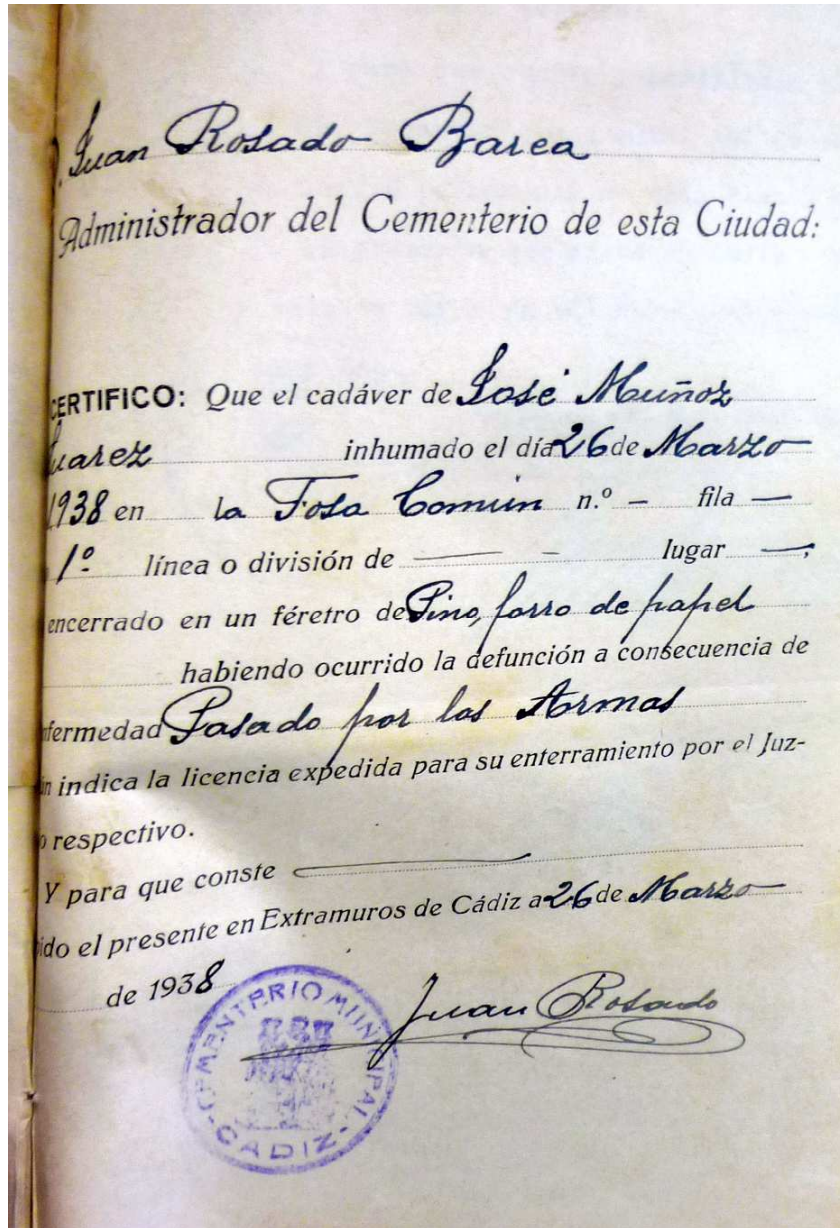 D. Juan Rosado Barea
Administrador del Cementerio de esta Ciudad:
CERTIFICO: Que el cadáver de José Muñoz
Suarez inhumado el día 26 de Marzo
1938 en la Fosa Común n.º – fila —
1º línea o división de — – lugar —,
encerrado en un féretro de Pino, forro de papel
habiendo ocurrido la defunción a consecuencia de
nfermedad Pasado por las Armas
ún indica la licencia expedida para su enterramiento por el Juz-
o respectivo.
Y para que conste —
ido el presente en Extramuros de Cádiz a 26 de Marzo
de 1938
Juan Rosado
CEMENTERIO MUNICIPAL
-CADIZ-